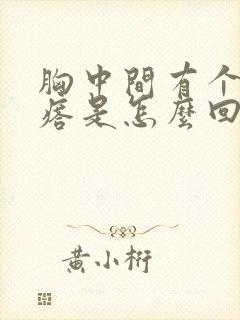 胸中間有个
痞是怎麼回
黃小桁